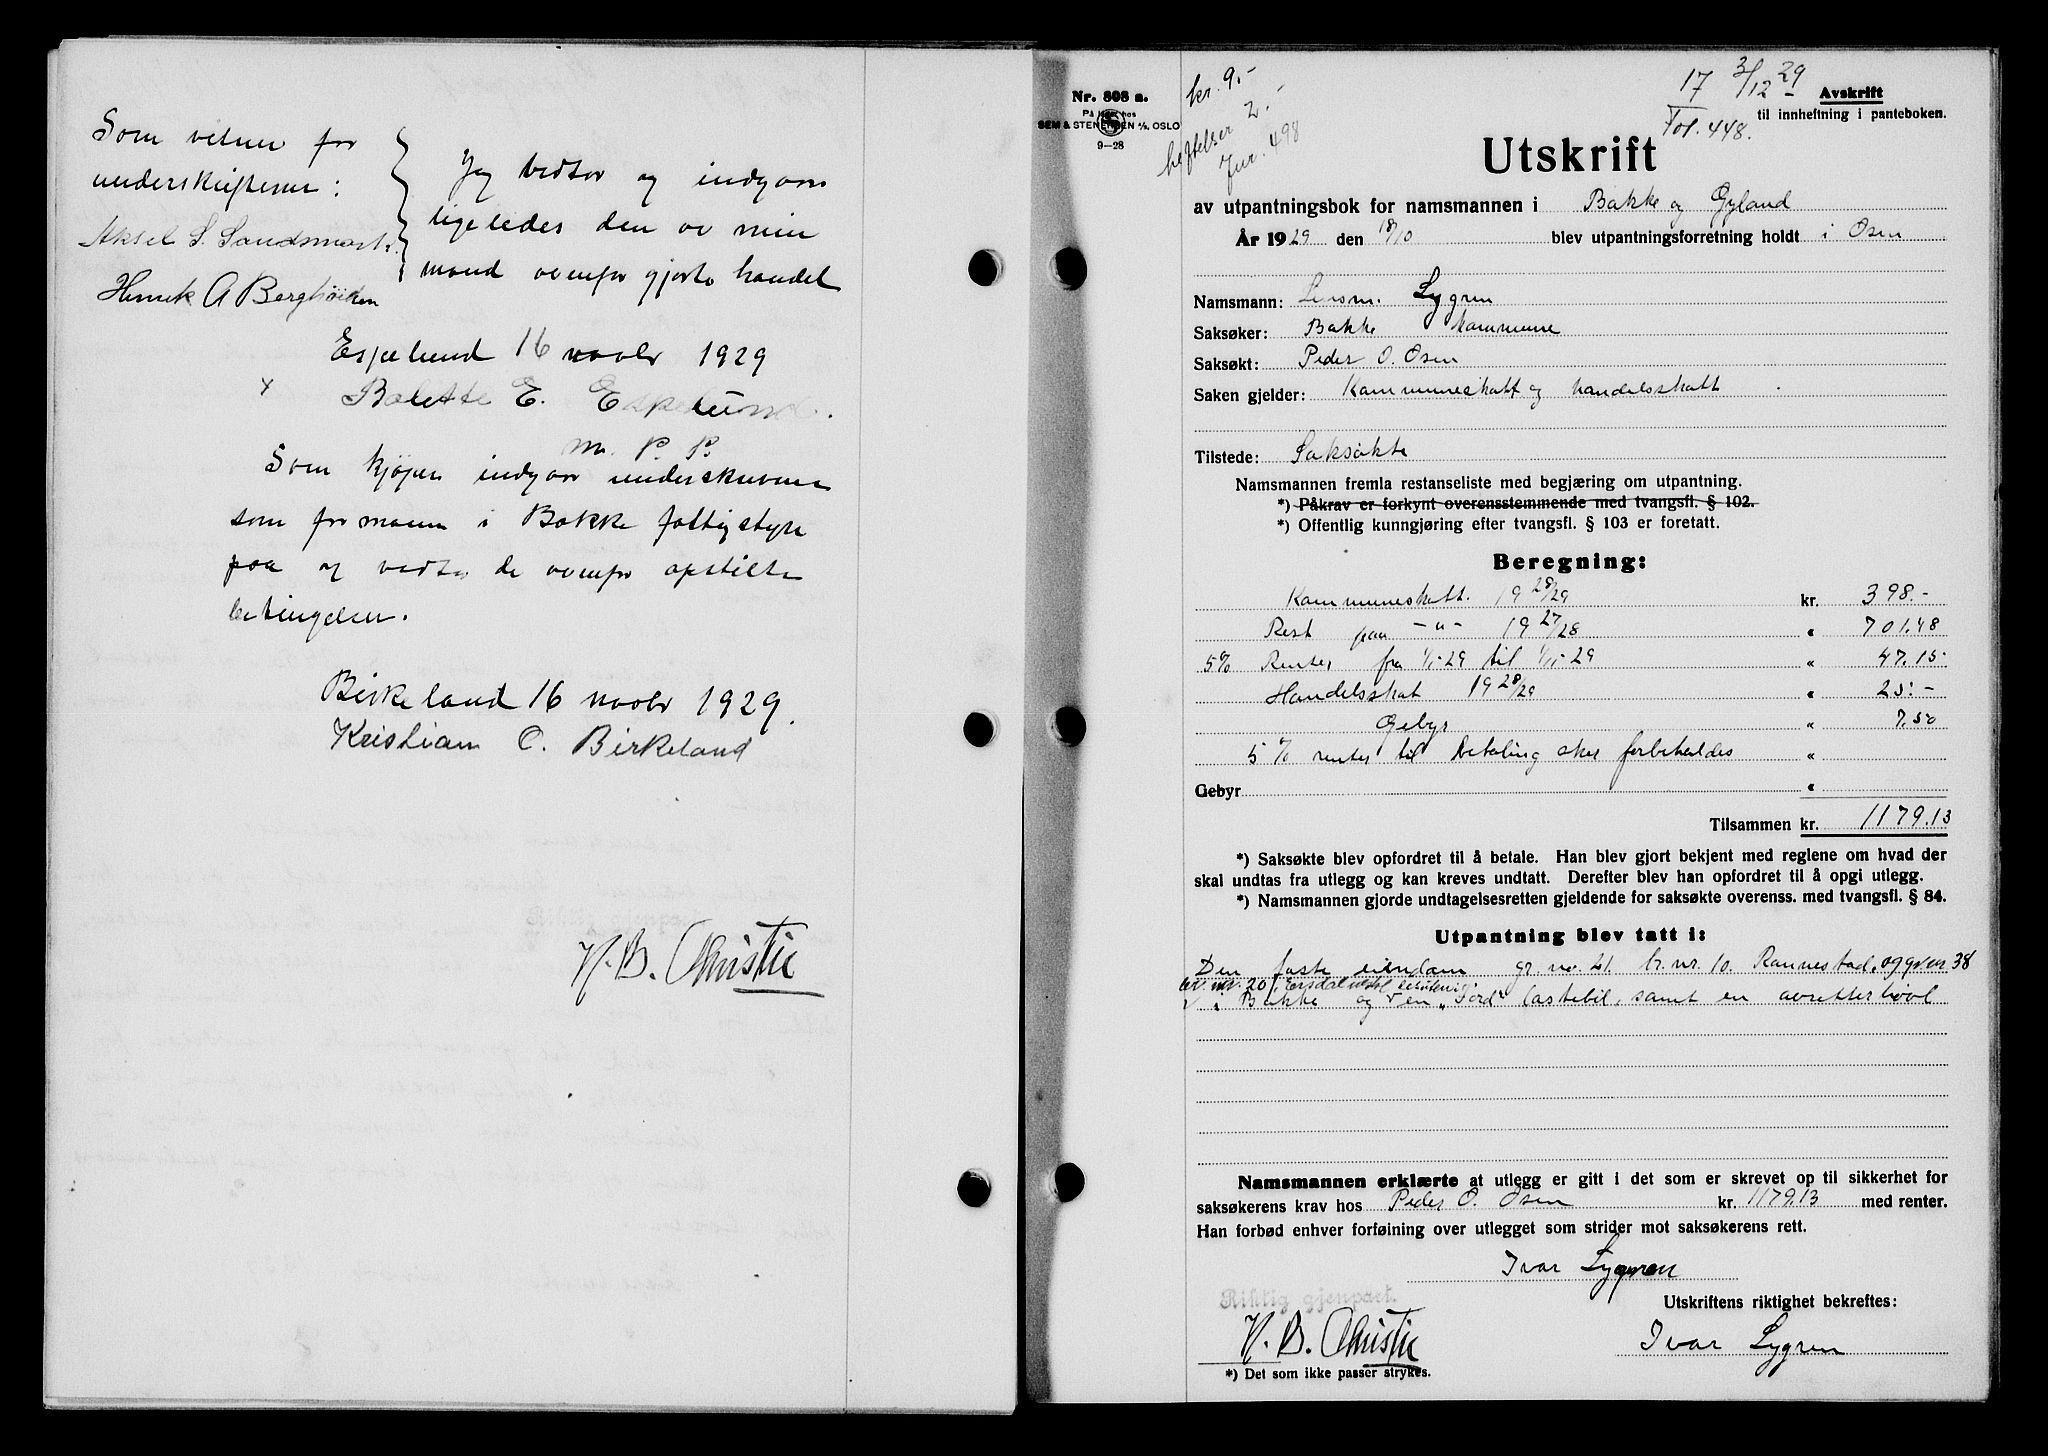 Som vitner for
underskrifterne:
Aksel S. Sandsmark.
Henrik A Bergheiden
Jeg vedtar og indgaar
ligeledes den av min
mand ovenfor gjorte handel
Espelund 16 novbr 1929
x Bolette E. Espelund.
m. P. P.
Som kjøper indgaar underskrevne
som formann i Bakke fattigstyre
paa og vedtar de ovenfor opstilte
betingelser.
Birkeland 16 novbr 1929.
Kristian O. Birkeland
H. B. Christie
Nr. 808 a.
På lager hos
SEM & STENERSEN A/S, OSLO
9–28
kr. 9.-
heftelser 2.-
Jnr. 498
17 3/12 29
Fol. 448.
Avskrift
til innheftning i panteboken.
Utskrift
av utpantningsbok for namsmannen i Bakke og Gyland
År 1929 den 18/10 blev utpantningsforretning holdt i Osen
Namsmann: Lensm. Lygren
Saksøker: Bakke kommune
Saksøkt: Peder O. Osen
Saken gjelder: Kommuneskatt og handelsskatt
Tilstede: Saksøkte
Namsmannen fremla restanseliste med begjæring om utpantning.
*) Påkrav er forkynt overensstemmende med tvangsfl. § 102.
*) Offentlig kunngjøring efter tvangsfl. § 103 er foretatt.
Beregning:
Kommuneskatt. 1928/29 kr. 398.-
Rest paa -"- 1927/28 " 701.48
5% Renter fra 1/1-29 til 1/11-29 " 47.15
Handelsskat 1928/29 " 25.-
Gebyr " 7.50
5% renter til betaling sker forbeholdes "
Gebyr "
Tilsammen kr. 1179.13
*) Saksøkte blev opfordret til å betale. Han blev gjort bekjent med reglene om hvad der
skal undtas fra utlegg og kan kreves undtatt. Derefter blev han opfordret til å opgi utlegg.
*) Namsmannen gjorde undtagelsesretten gjeldende for saksøkte overenss. med tvangsfl. § 84.
Utpantning blev tatt i:
Den faste eiendom gr. no. 21. br. nr. 10. Rannestad, og gr. nr 38
br. nr. 20
i Bakke og en "Ford" lastebil, samt en avretterhøvl
Namsmannen erklærte at utlegg er gitt i det som er skrevet op til sikkerhet for
saksøkerens krav hos Peder O. Osen kr. 1179.13 med renter.
Han forbød enhver forføining over utlegget som strider mot saksøkerens rett.
Ivar Lygren
Riktig gjenpart.
Utskriftens riktighet bekreftes:
H. B. Christie
Ivar Lygren
*) Det som ikke passer strykes.